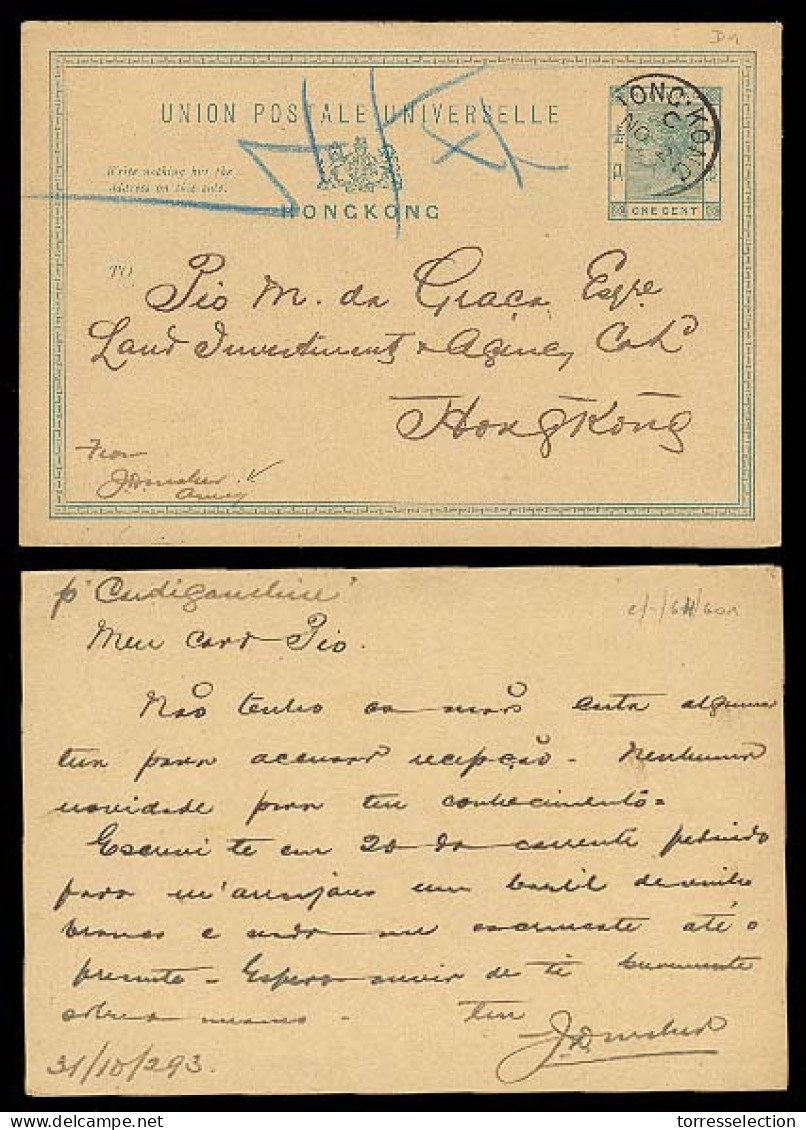 D1
UNION POSTALE UNIVERSELLE
Write nothing but the
address on this side.
HONGKONG
HONG-KONG
C
NO
ONE CENT
TO
Pio M. da Graça Esqre
Land Investment & Agency Co Ld
Hongkong
From
Amoy
p "Cardiganshire"
Meu caro Pio.
Não tenho ao mão carta alguma
tua para accusar recepção - Nenhuma
novidade para teu conhecimento =
Escrevi te em 20 do corrente pedindo
para m'arranjares um barril de vinho
branco e não me até o
presente - Espero ouvir de ti brevemente
sobre o mesmo - Teu
31/10/293.
torresselection